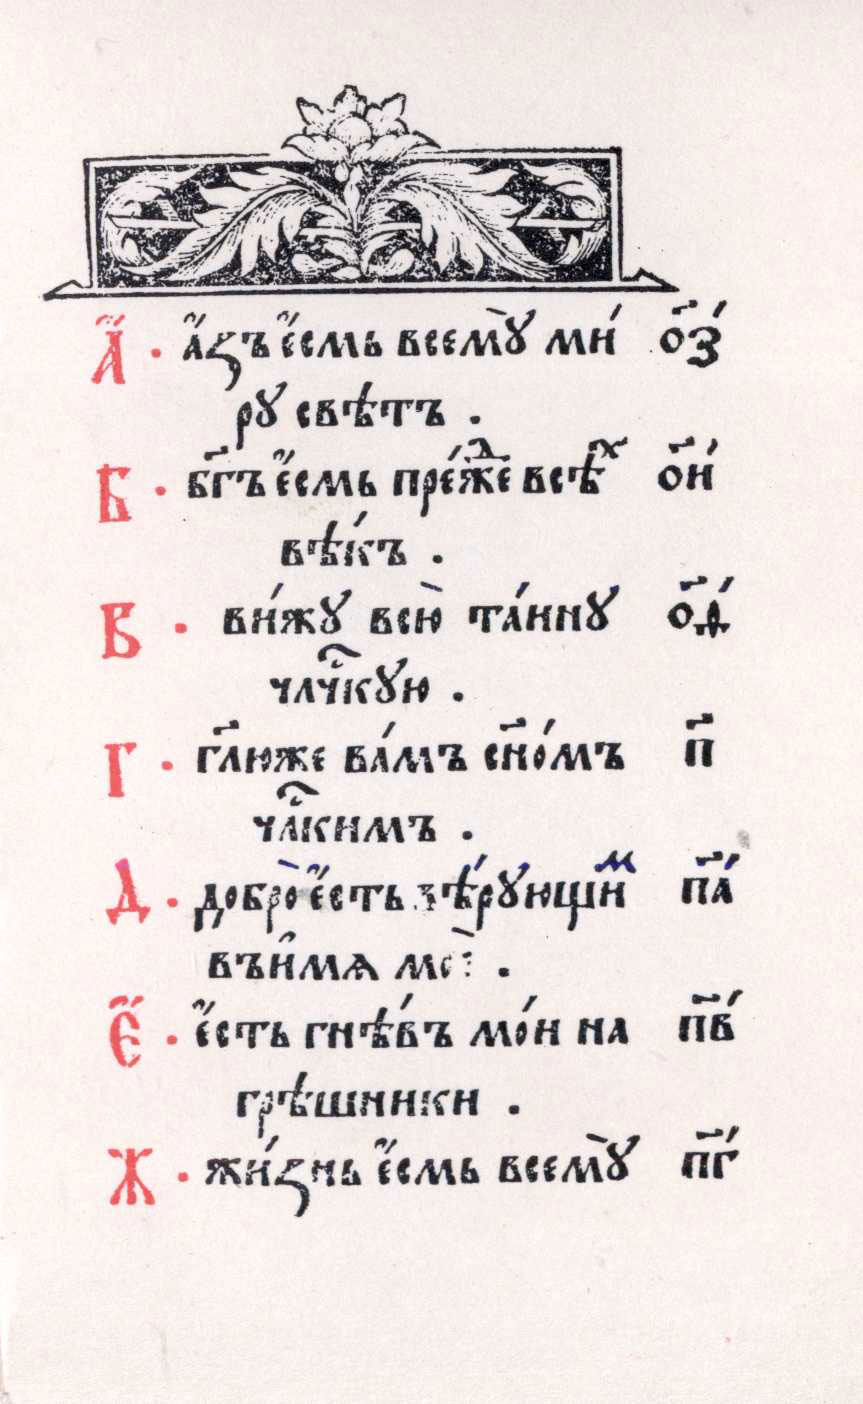 А҆҃ · а҆́зъ є҆́смь всемꙋ̀ ми́ о҃з
рꙋ свѣ́тъ .
Б · бг҃ъ є҆́смь пре́жⷣе всѣ́ⷯ о҃и
вѣ́къ .
В · ви́жꙋ всю̀ та́инꙋ о҃ѳ
члч҃кꙋю .
Г · гл҃юже ва́мъ сн҃о́мъ п҃
чл҃кимъ .
Д · добро̀ є҆́сть вѣ́рꙋющиⷨ п҃а
въи҆́мя моѐ .
Є҆́ · є҆́сть гнѣ́въ мо́и на п҃в
грѣ́шники .
Ж · жи́знь є҆́смь всемꙋ̀ п҃г